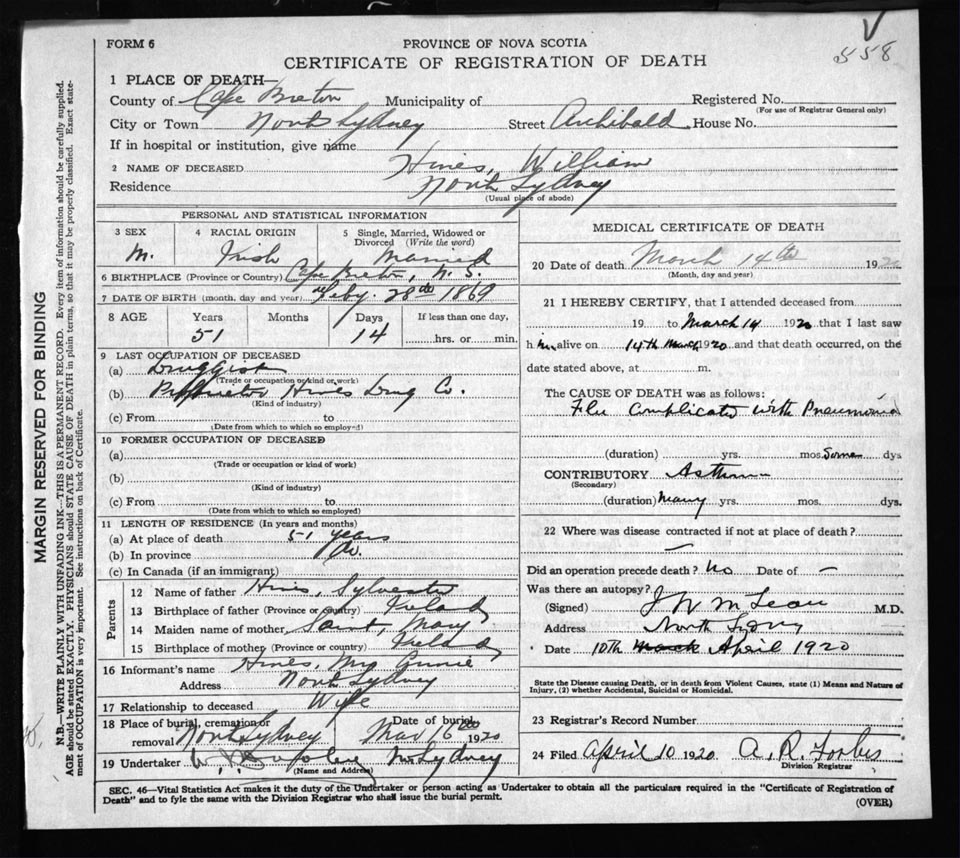 558
FORM 6
PROVINCE OF NOVA SCOTIA
CERTIFICATE OF REGISTRATION OF DEATH
1 PLACE OF DEATH
County of Cape Breton Municipality of Registered No.
(For use of Registrar General only)
City or Town North Sydney Street Archibald House No.
If in hospital or institution, give name
2 NAME OF DECEASED Hines, William
Residence North Sydney
(Usual place of abode)
PERSONAL AND STATISTICAL INFORMATION
3 SEX M.
4 RACIAL ORIGIN Irish
5 Single, Married, Widowed or Divorced (Write the word) Married
6 BIRTHPLACE (Province or Country) Cape Breton, N. S.
7 DATE OF BIRTH (month, day and year) Feby. 28th 1869
8 AGE Years Months Days If less than one day,
51 14 hrs. or min.
9 LAST OCCUPATION OF DECEASED
(a) Druggist
(Trade or occupation or kind or work)
(b) Proprietor Hines Drug Co.
(Kind of industry)
(c) From to
(Date from which to which so employed)
10 FORMER OCCUPATION OF DECEASED
(a)
(Trade or occupation or kind of work)
(b)
(Kind of industry)
(c) From to
(Date from which to which so employed)
11 LENGTH OF RESIDENCE (In years and months)
(a) At place of death 51 years
(b) In province Do.
(c) In Canada (if an immigrant)
Parents
12 Name of father Hines, Sylvester
13 Birthplace of father (Province or country) Ireland
14 Maiden name of mother Saint, Mary
15 Birthplace of mother (Province or country) Ireland
16 Informant's name Hines, Mrs Annie
Address North Sydney
17 Relationship to deceased Wife
18 Place of burial, cremation or removal North Sydney Date of burial Mar 16th 1920
19 Undertaker N. Sydney
(Name and Address)
MEDICAL CERTIFICATE OF DEATH
20 Date of death March 14th 1920
(Month, day and year)
21 I HEREBY CERTIFY, that I attended deceased from
19 to March 14 1920 that I last saw
him alive on 14th March 1920 and that death occurred, on the
date stated above, at m.
The CAUSE OF DEATH was as follows:
Flu Complicated with Pneumonia
(duration) yrs. mos. dys
CONTRIBUTORY Asthma
(Secondary)
(duration) many yrs. mos. dys.
22 Where was disease contracted if not at place of death?
—
Did an operation precede death? No Date of –
Was there an autopsy?
(Signed) J W McLean M.D.
Address North Sydney
Date 10th March April 1920
State the Disease causing Death, or in death from Violent Causes, state (1) Means and Nature of
Injury, (2) whether Accidental, Suicidal or Homicidal.
23 Registrar's Record Number
24 Filed April 10 1920 A. R. Forbes
Division Registrar
SEC. 46—Vital Statistics Act makes it the duty of the Undertaker or person acting as Undertaker to obtain all the particulars required in the "Certificate of Registration of
Death" and to fyle the same with the Division Registrar who shall issue the burial permit.
(OVER)
MARGIN RESERVED FOR BINDING
N.B.—WRITE PLAINLY WITH UNFADING INK—THIS IS A PERMANENT RECORD. Every item of information should be carefully supplied.
AGE should be stated EXACTLY. PHYSICIANS should STATE CAUSE OF DEATH in plain terms, so that it may be properly classified. Exact statement of OCCUPATION is very important. See instructions on back of Certificate.